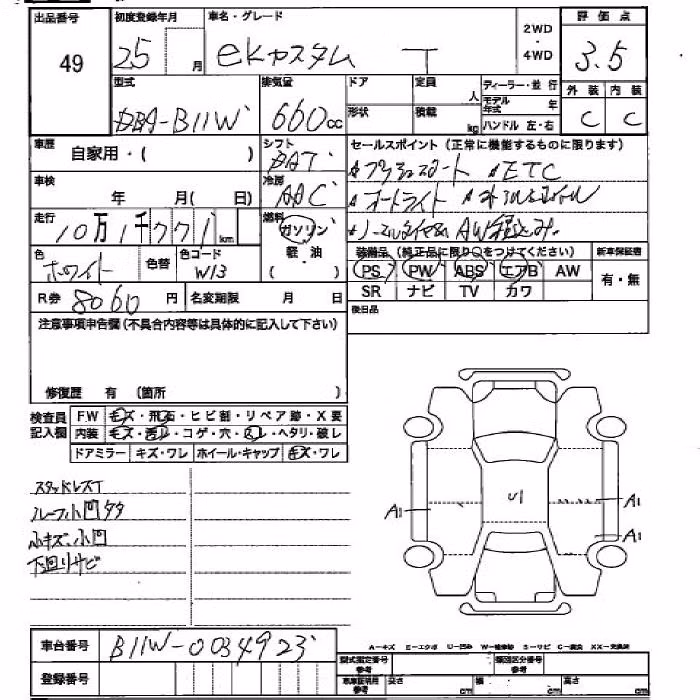 出品番号 初度登録年月 車名・グレード 2WD・4WD 評価点
49 25 月 eKカスタム T 3.5
型式 排気量 ドア 定員 人 ディーラー・並行 外装 内装
DBA-B11W 660cc 形状 積載 kg モデル年式 年 ハンドル 左・右 C C
車歴 自家用・( ) シフト セールスポイント(正常に機能するものに限ります)
車検 年 月( 日) 冷房 AAC プッシュスタート ETC
走行 km 燃料 ガソリン オートライト
軽油 ( )
色 ホワイト 色替 色コード W13 装備品(純正品に限り○をつけてください) 新車保証書
PS PW ABS エアB AW 有・無
R券 8060 円 名変期限 月 日 SR ナビ TV カワ
注意事項申告欄(不具合内容等は具体的に記入して下さい) 後日品
修復歴 有 (箇所 )
検査員記入欄 FW キズ・飛石・ヒビ割・リペア跡・X要
内装 キズ・汚れ・コゲ・穴・スレ・ヘタリ・破レ
ドアミラー キズ・ワレ ホイール・キャップ キズ・ワレ
スタッドレスT
ルーフ小凹タタ
小キズ、小凹
下回リサビ
U1
A1 A1
A1
A-キズ E-エクボ U-凹み W-補修跡 S-サビ C-腐食 XX-交換済
車台番号 B11W-0034923
登録番号
型式指定番号 参考 類別区分番号 参考
車庫証明用 参考 長さ cm 幅 cm 高さ cm